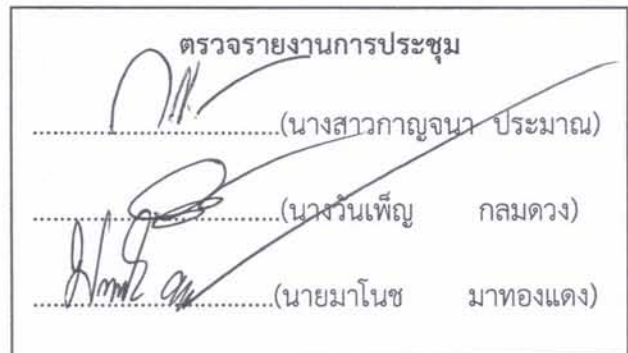 ตรวจรายงานการประชุม
..............................(นางสาวกาญจนา ประมาณ)
..............................(นางวันเพ็ญ กลมดวง)
..............................(นายมาโนช มาทองแดง)